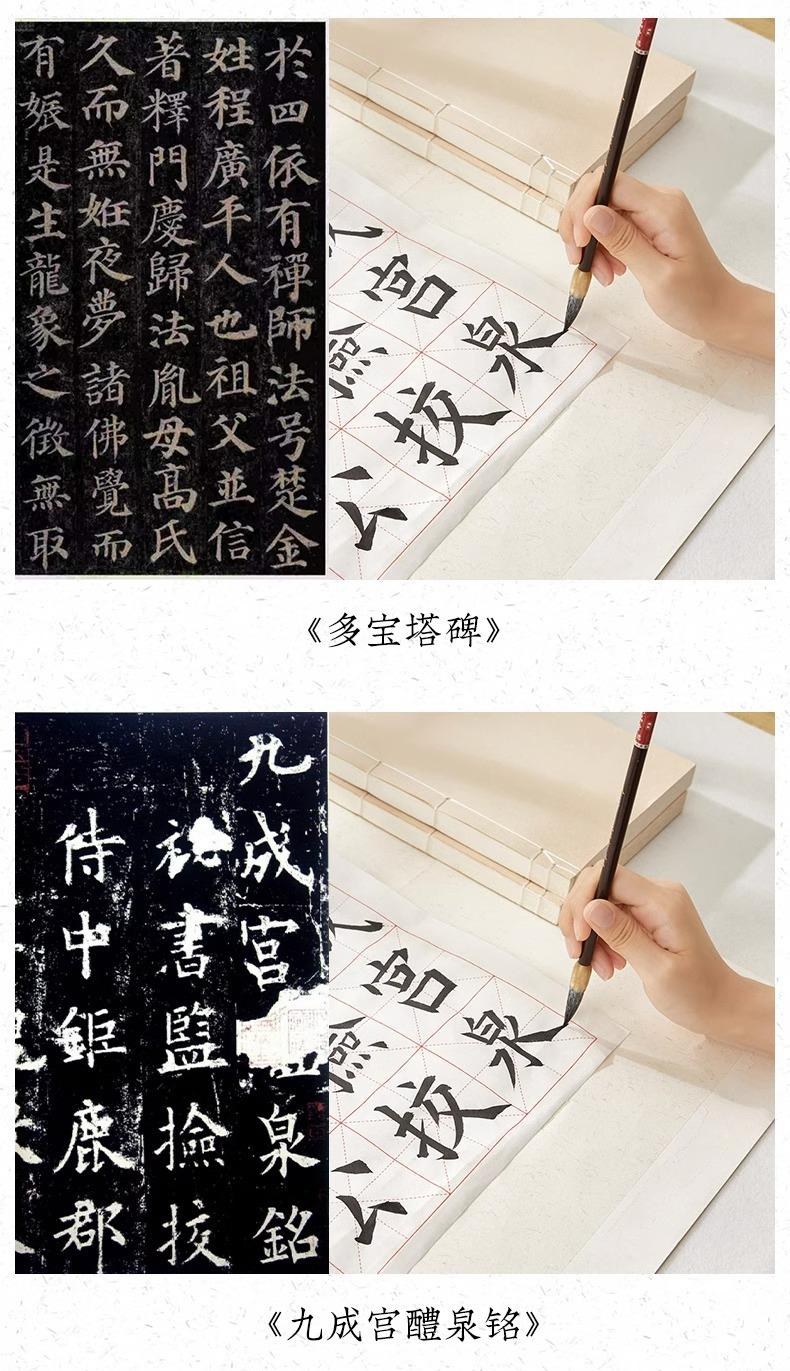 於四依有禪師法号楚金
姓程廣平人也祖父並信
著釋門慶歸法胤母高氏
久而無姙夜夢諸佛覺而
有娠是生龍象之徵無取
宫泉
熙挍
公
《多宝塔碑》
九成宫泉銘
秘書監撿挍
侍中鉅鹿郡
宫泉
熙挍
公
《九成宫醴泉铭》